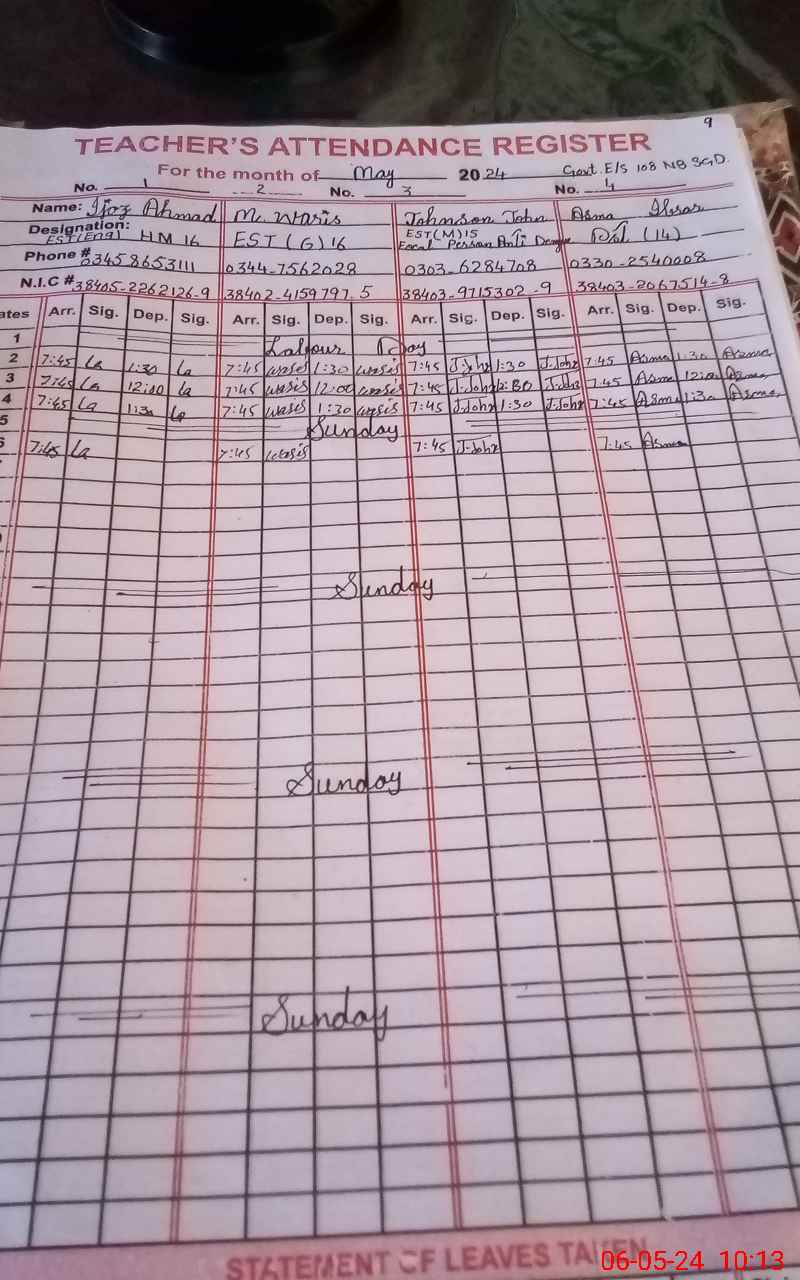 9
TEACHER'S ATTENDANCE REGISTER
For the month of May 2024 Govt. E/S 108 NB SGD.
No. 1 2 No. 3 No. 4
Name: Ijaz Ahmad M. Waris Johnson John Asma
Designation: EST(Eng) HM 16 EST (G) 16 EST(M)15 (14)
Focal Person Anti Dengue
Phone # 03458653111 0344-7562028 0303-6284708 0330-2540008
N.I.C # 38405-2262126-9 38402-4159797-5 38403-9715302-9 38403-2067514-8
ates Arr. Sig. Dep. Sig. Arr. Sig. Dep. Sig. Arr. Sig. Dep. Sig. Arr. Sig. Dep. Sig.
1 Labour Day
2 7:45 1:30 7:45 waris 1:30 waris 7:45 J.John 1:30 J.John 7:45 Asma 1:30 Asma
3 7:45 12:00 7:45 waris 12:00 waris 7:45 J.John J.John 7:45 Asma 12:00 Asma
4 7:45 1:30 7:45 waris 1:30 waris 7:45 J.John 1:30 J.John 7:45 Asma 1:30 Asma
5 Sunday
6 7:45 7:45 waris 7:45 J.John 7:45 Asma
Sunday
Sunday
Sunday
STATEMENT OF LEAVES TAKEN
06-05-24 10:13